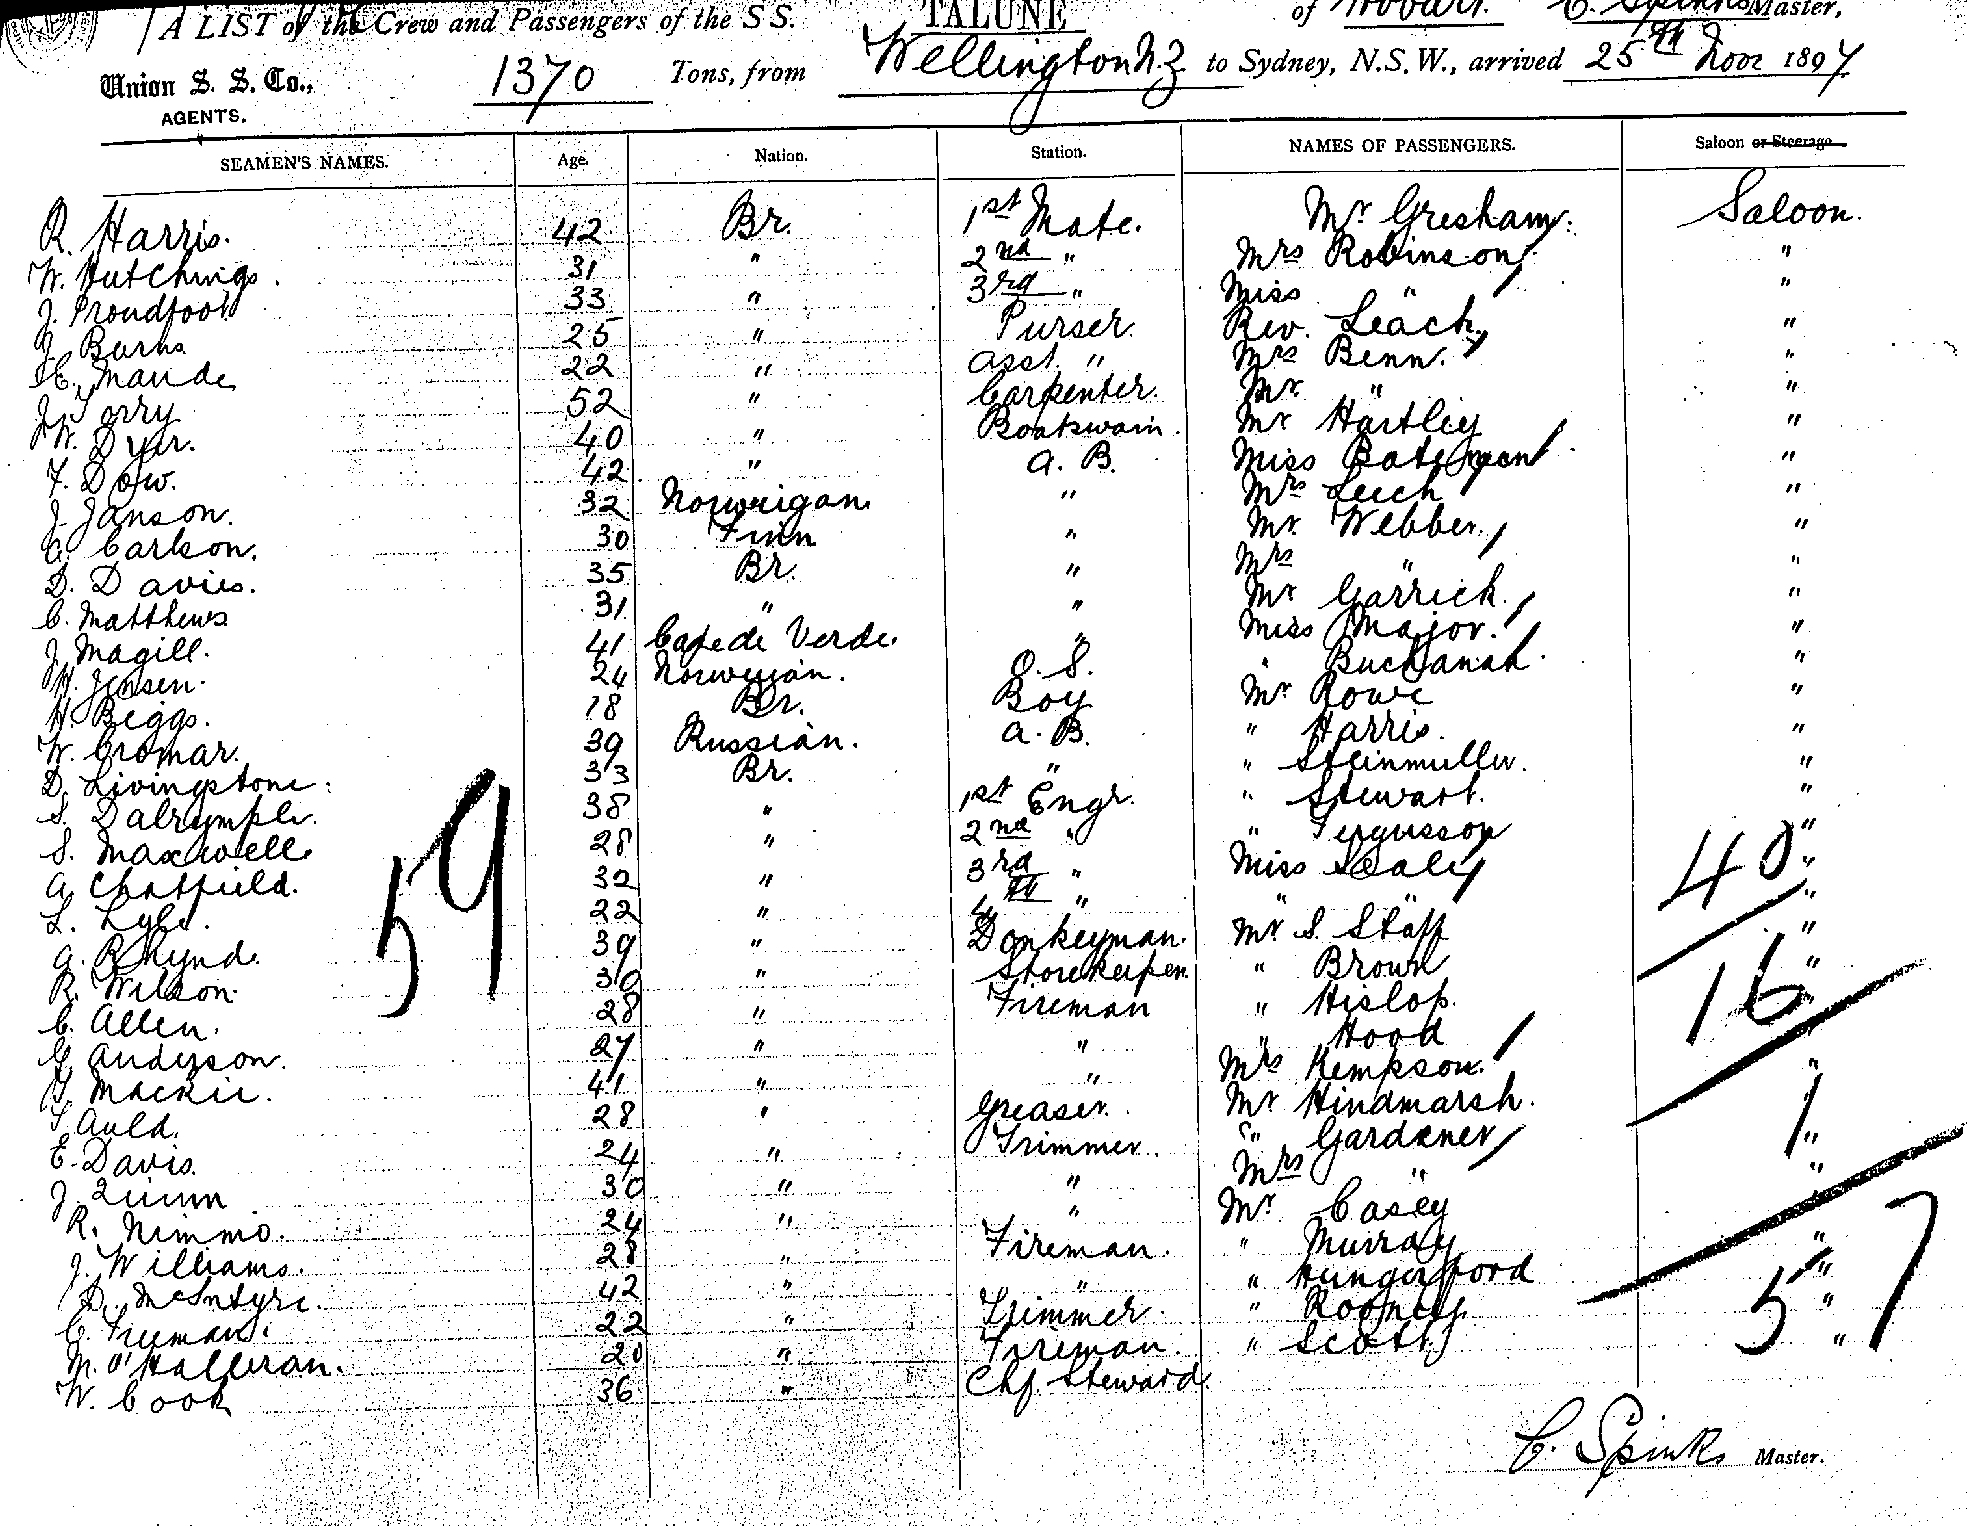 A LIST of the Crew and Passengers of the S S. TALUNE of Hobart. C. Spinks Master,
Union S. S. Co., 1370 Tons, from Wellington N.Z. to Sydney, N.S.W., arrived 25th Novr 1897
AGENTS.
SEAMEN'S NAMES. Age. Nation. Station. NAMES OF PASSENGERS. Saloon or Steerage
R. Harris. 42 Br. 1st Mate. Mr Gresham. Saloon.
W. Hutchings. 31 " 2nd " Mrs Robinson "
J. Proudfoot 33 " 3rd " Miss " "
J. Burns 25 " Purser. Rev. Leach, "
H. Maude 22 " Asst. " Mrs Benn. "
J. Torry 52 " Carpenter. Mr. " "
W. Dyer. 40 " Boatswain. Mr Hartley "
F. Dow. 42 " A. B. Miss Bateman "
J. Janson. 32 Norweigan " Mrs Leech "
A. Carlson. 30 Finn " Mr. Webber. "
D. Davies. 35 Br. " Mrs " "
C. Matthews 31 " " Mr Garrick. "
J. Magill. 41 Cape de Verde. " Miss Major. "
H. Jensen. 24 Norwegian. O. S. " Buchanan. "
H. Biggs. 18 Br. Boy Mr Rowe "
W. Cromar. 39 Russian. A. B. " Harris. "
D. Livingstone. 33 Br. " " Steinmuller. "
S. Dalrymple. 38 " 1st Engr. " Stewart. "
S. Maxwell 28 " 2nd " " Fergusson "
A. Chatfield. 32 " 3rd " Miss Sealy "
L. Lyle. 22 " 4th " " "
A. Rhynd. 39 " Donkeyman. Mr S. Stapp "
R. Wilson. 30 " Storekeeper " Brown "
C. Allen. 28 " Fireman " Hislop. "
G. Anderson. 27 " " " Hood
Mackie. 41 " " Mrs Kempson. "
Auld. 28 " Greaser. Mr Hindmarsh.
E. Davis. 24 " Trimmer. " Gardener "
J. Quinn 30 " " Mrs " "
R. Nimmo. 24 " " Mr Casey
J. Williams. 28 " Fireman. " Murray "
D. McIntyre. 42 " " " Hungerford "
C. Freeman. 22 " Trimmer. " Rooney. "
M. O'Halleran. 20 " Fireman. " Scott "
W. Cook 36 " Chf. Steward.
59
40
16
1
57
C. Spinks Master.